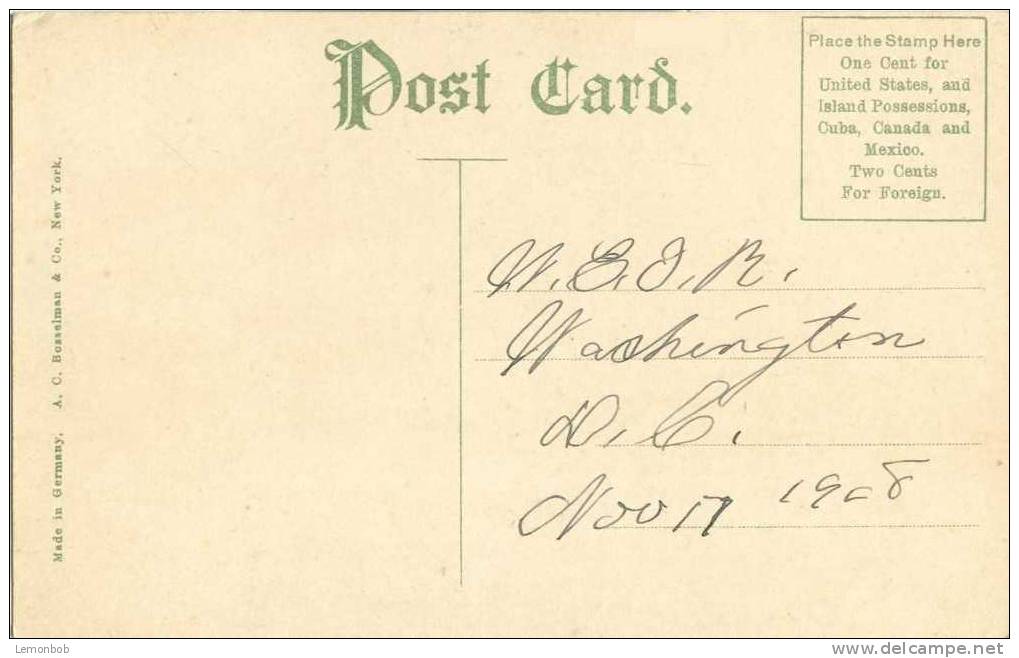 Post Card.
Place the Stamp Here
One Cent for
United States, and
Island Possessions,
Cuba, Canada and
Mexico.
Two Cents
For Foreign.
Made in Germany. A. C. Bosselman & Co., New York.
W. E. J. R.
Washington
D. C.
Nov 17 1908
Lemonbob
www.delcampe.net